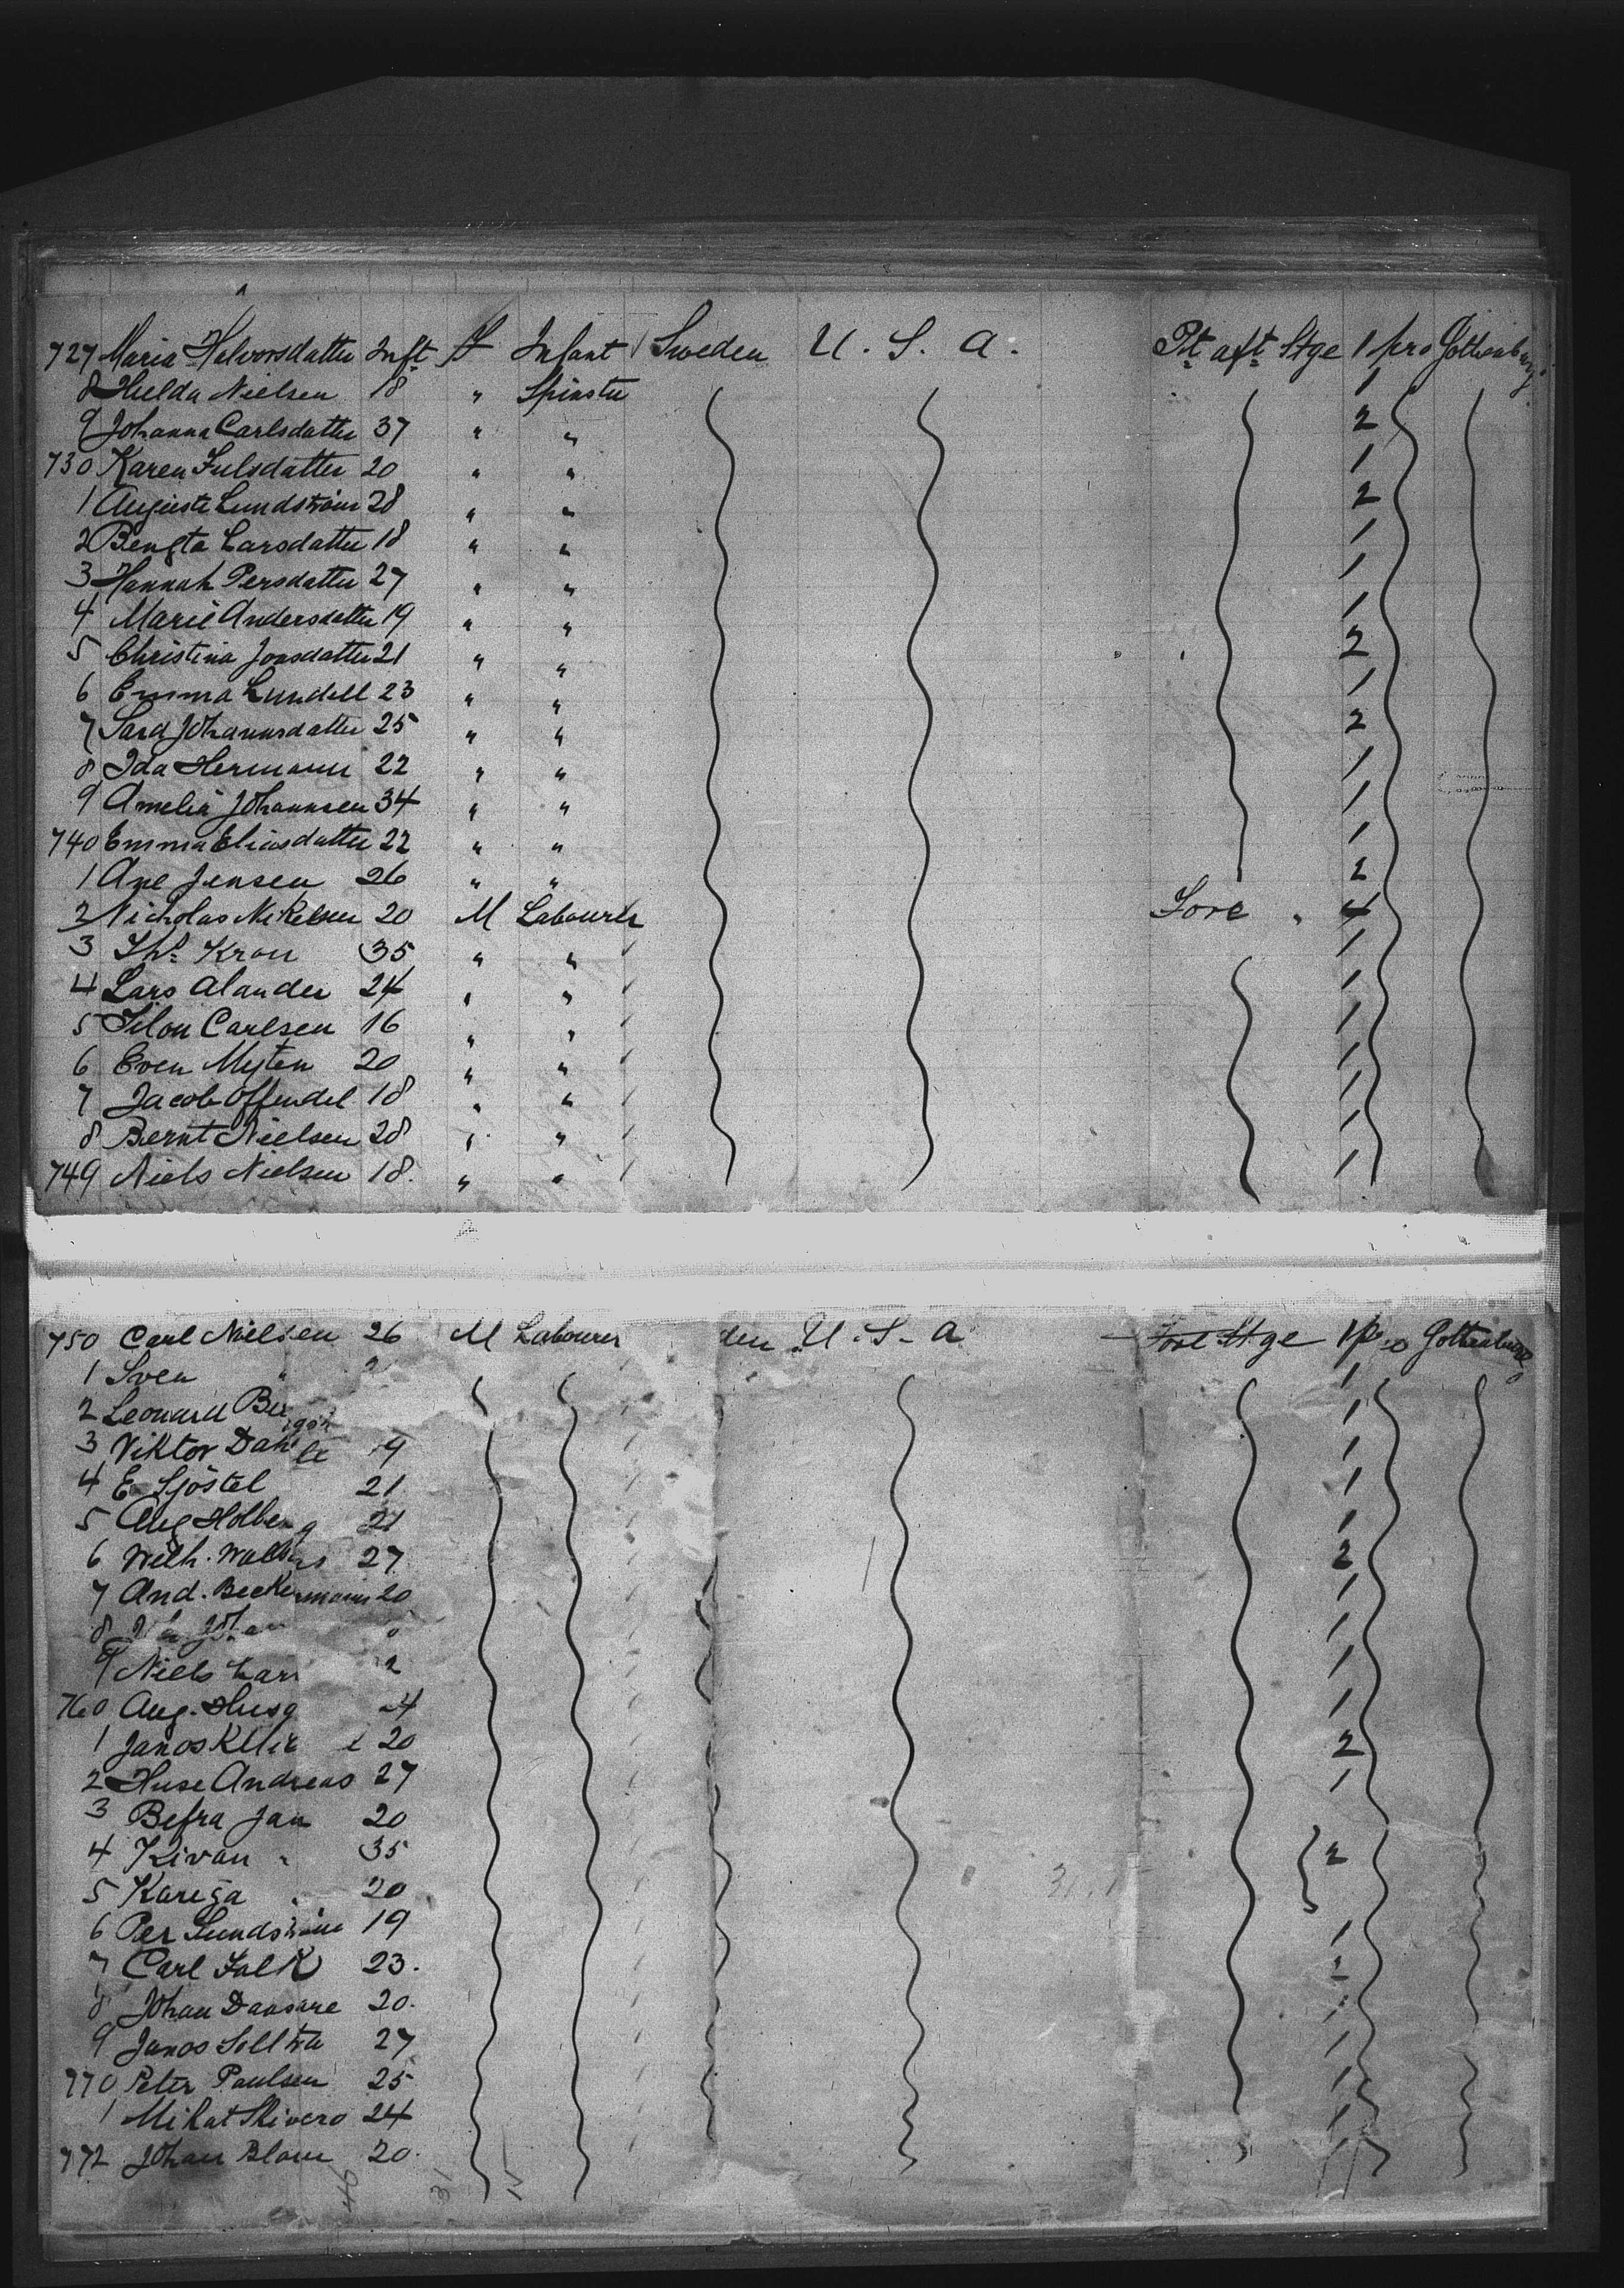 727 Maria Halvorsdatter Inft F Infant Sweden U. S. A. Pt aft Stge 1 pro Gothenburg
8 Hulda Nielsen 18 " Spinster 1
9 Johanna Carlsdatter 37 " " 2
730 Karen Julsdatter 20 " " 1
1 Augusta Lundström 28 " " 2
2 Bengta Larsdatter 18 " " 1
3 Hannah Persdatter 27 " " 1
4 Marie Andersdatter 19 " " 1
5 Christina Jonsdatter 21 " " 2
6 Emma Lundell 23 " " 1
7 Johannsdatter 25 " " 2
8 Ida Hermann 22 " " 1
9 Amelia Johannsen 34 " " 1
740 Emma Eliasdatter 22 " " 1
1 Ane Jensen 26 " " 2
2 Nicholas Nikelsen 20 M Labourer Fore " 4
3 Ths Kron 35 " " 1
4 Lars Alander 24 " " 1
5 Carlsen 16 " " 1
6 Even Myten 20 " " 1
7 Jacob Offendel 18 " " 1
8 Bernt Nielsen 28 " " 1
749 Niels Nielsen 18. " " 1
750 Carl Nielsen 26 M Labourer den U. S. A Fore Stge 1 pro Gothenburg
1 Sven " 2 1
2 Leonard 1
3 Viktor 19 1
4 E Sjöstel 21 1
5 Aug Holberg 21 1
6 Wilh. 27 2
7 And. Beckermann 20 1
8 1
9 Niels Lars 2 1
760 Aug. 4 1
1 Janos 20 2
2 Huse Andreas 27 1
3 Befra Jan 20
4 Kivan " 35 2
5 Kareja " 20
6 Per Lundström 19 1
7 Carl Falk 23.
8 Johan Dansare 20.
9 Janos 27 1
770 Peter Paulsen 25 1
1 Mihat Skivero 24 1
772 Johan Blom 20.
46 31